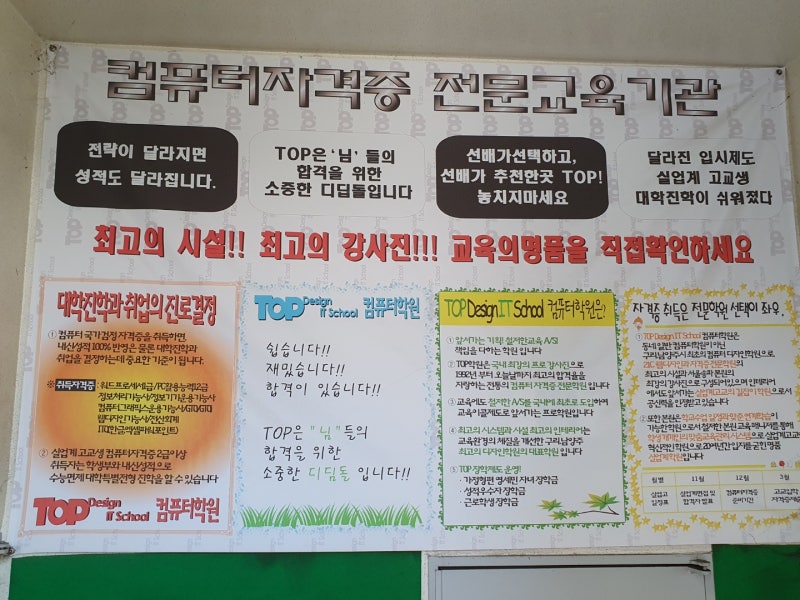 컴퓨터자격증 전문교육기관
전략이 달라지면
성적도 달라집니다.
TOP은 '님' 들의
합격을 위한
소중한 디딤돌입니다
선배가선택하고,
선배가 추천한곳 TOP!
놓치지마세요
달라진 입시제도
실업계 고교생
대학진학이 쉬워졌다
최고의 시설!! 최고의 강사진!!! 교육의명품을 직접확인하세요
대학진학과 취업의 진로결정
① 컴퓨터 국가검정 자격증을 취득하면,
내신성적 100% 반영은 물론 대학진학과
취업을 결정하는데 중요한 기준이 됩니다.
※ 취득자격증 : 워드프로세서1급/PC활용능력2급
정보처리기능사/정보기기운용기능사
컴퓨터그래픽스운용기능사/GTQ/GTQ
웹디자인기능사/전산회계
ITQ(한글엑셀파워포인트)
② 실업계 고교생 컴퓨터자격증 2급이상
취득자는 학생부와 내신성적으로
수능면제 대학특별전형 진학을 할 수 있습니다
TOP Design IT School 컴퓨터학원
TOP Design IT School 컴퓨터학원
쉽습니다!!
재밌습니다!!
합격이 있습니다!!
TOP은 "님"들의
합격을 위한
소중한 디딤돌 입니다!!
TOP Design IT School 컴퓨터학원은?
① 앞서가는 기획! 철저한교육 A/S!
책임을 다하는 학원 입니다
② TOP학원은 국내 최강의 프로 강사진으로
1986년 부터 오늘날까지 최고의 합격율을
자랑하는 전통의 컴퓨터 자격증전문학원 입니다
③ 교육에도 철저한 A/S를 국내에 최초로 도입하여
교육이콜제도로 앞서가는 프로학원입니다
④ 최고의 시스템과 시설 최고의 인테리어는
교육환경의 체질을 개선한 구리,남양주
최고의 디자인학원의 대표학원 입니다
⑤ TOP 장학제도 운영!
· 가정형편 영세민 자녀 장학금
· 성적우수자 장학금
· 근로학생 장학금
자격증 취득은 전문학원 선택이 좌우.
① TOP Design IT School 컴퓨터학원은
동네 일반 컴퓨터학원이 아닌
구리,남양주시 최초의 컴퓨터 디자인학원으로
최고의 시설과 서울송파 본원의
최강의 강사진으로 구성되어있으며 인테리어
에서도 앞서가는 실업계고교의 길잡이 학원으로
공신력을 인정받고 있습니다.
② 또한 본원은
실업계학원입니다
월별 11월 12월 3월
실업고
일정표
실업계면접 및
합격자 발표
컴퓨터자격증
준비기간
고교입학